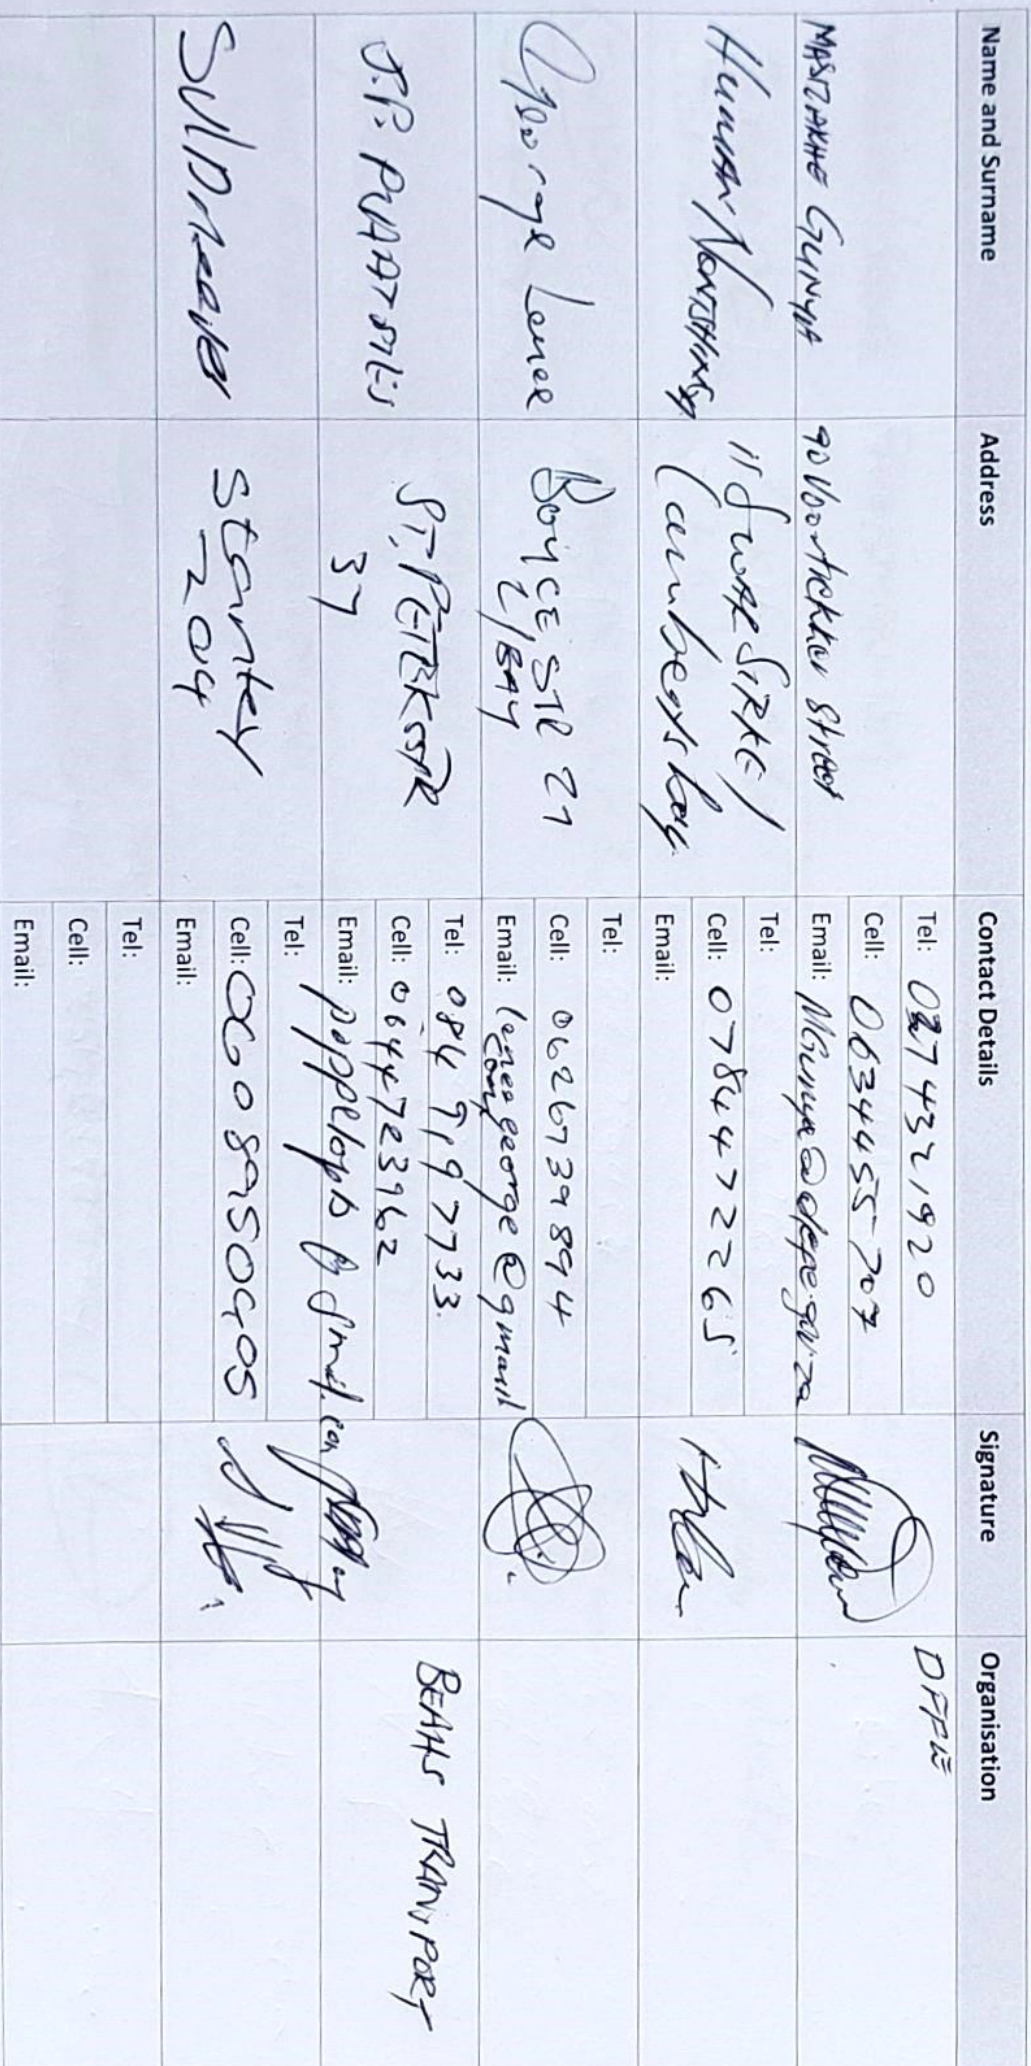 Name and Surname Address Contact Details Signature Organisation
MASIZAKHE GUNYA 90 Voortrekker Street
Tel: 0274321920
Cell: 0634455707
Email: MGunya@dffe.gov.za
DFFE
Human
Lamberts bay
Tel:
Cell: 0784472265
Email:
George Lenee BOYCE STR 21
L/BAY
Tel:
Cell: 0626739894
Email: leneegeorge@gmail
.com
J.P. PLAATJIES ST. PETERSSTR
37
Tel: 084 919 7733
Cell: 0644723962
Email:
BEAHS TRANSPORT
Stanley
204
Tel:
Cell:
Email:
Tel:
Cell:
Email: